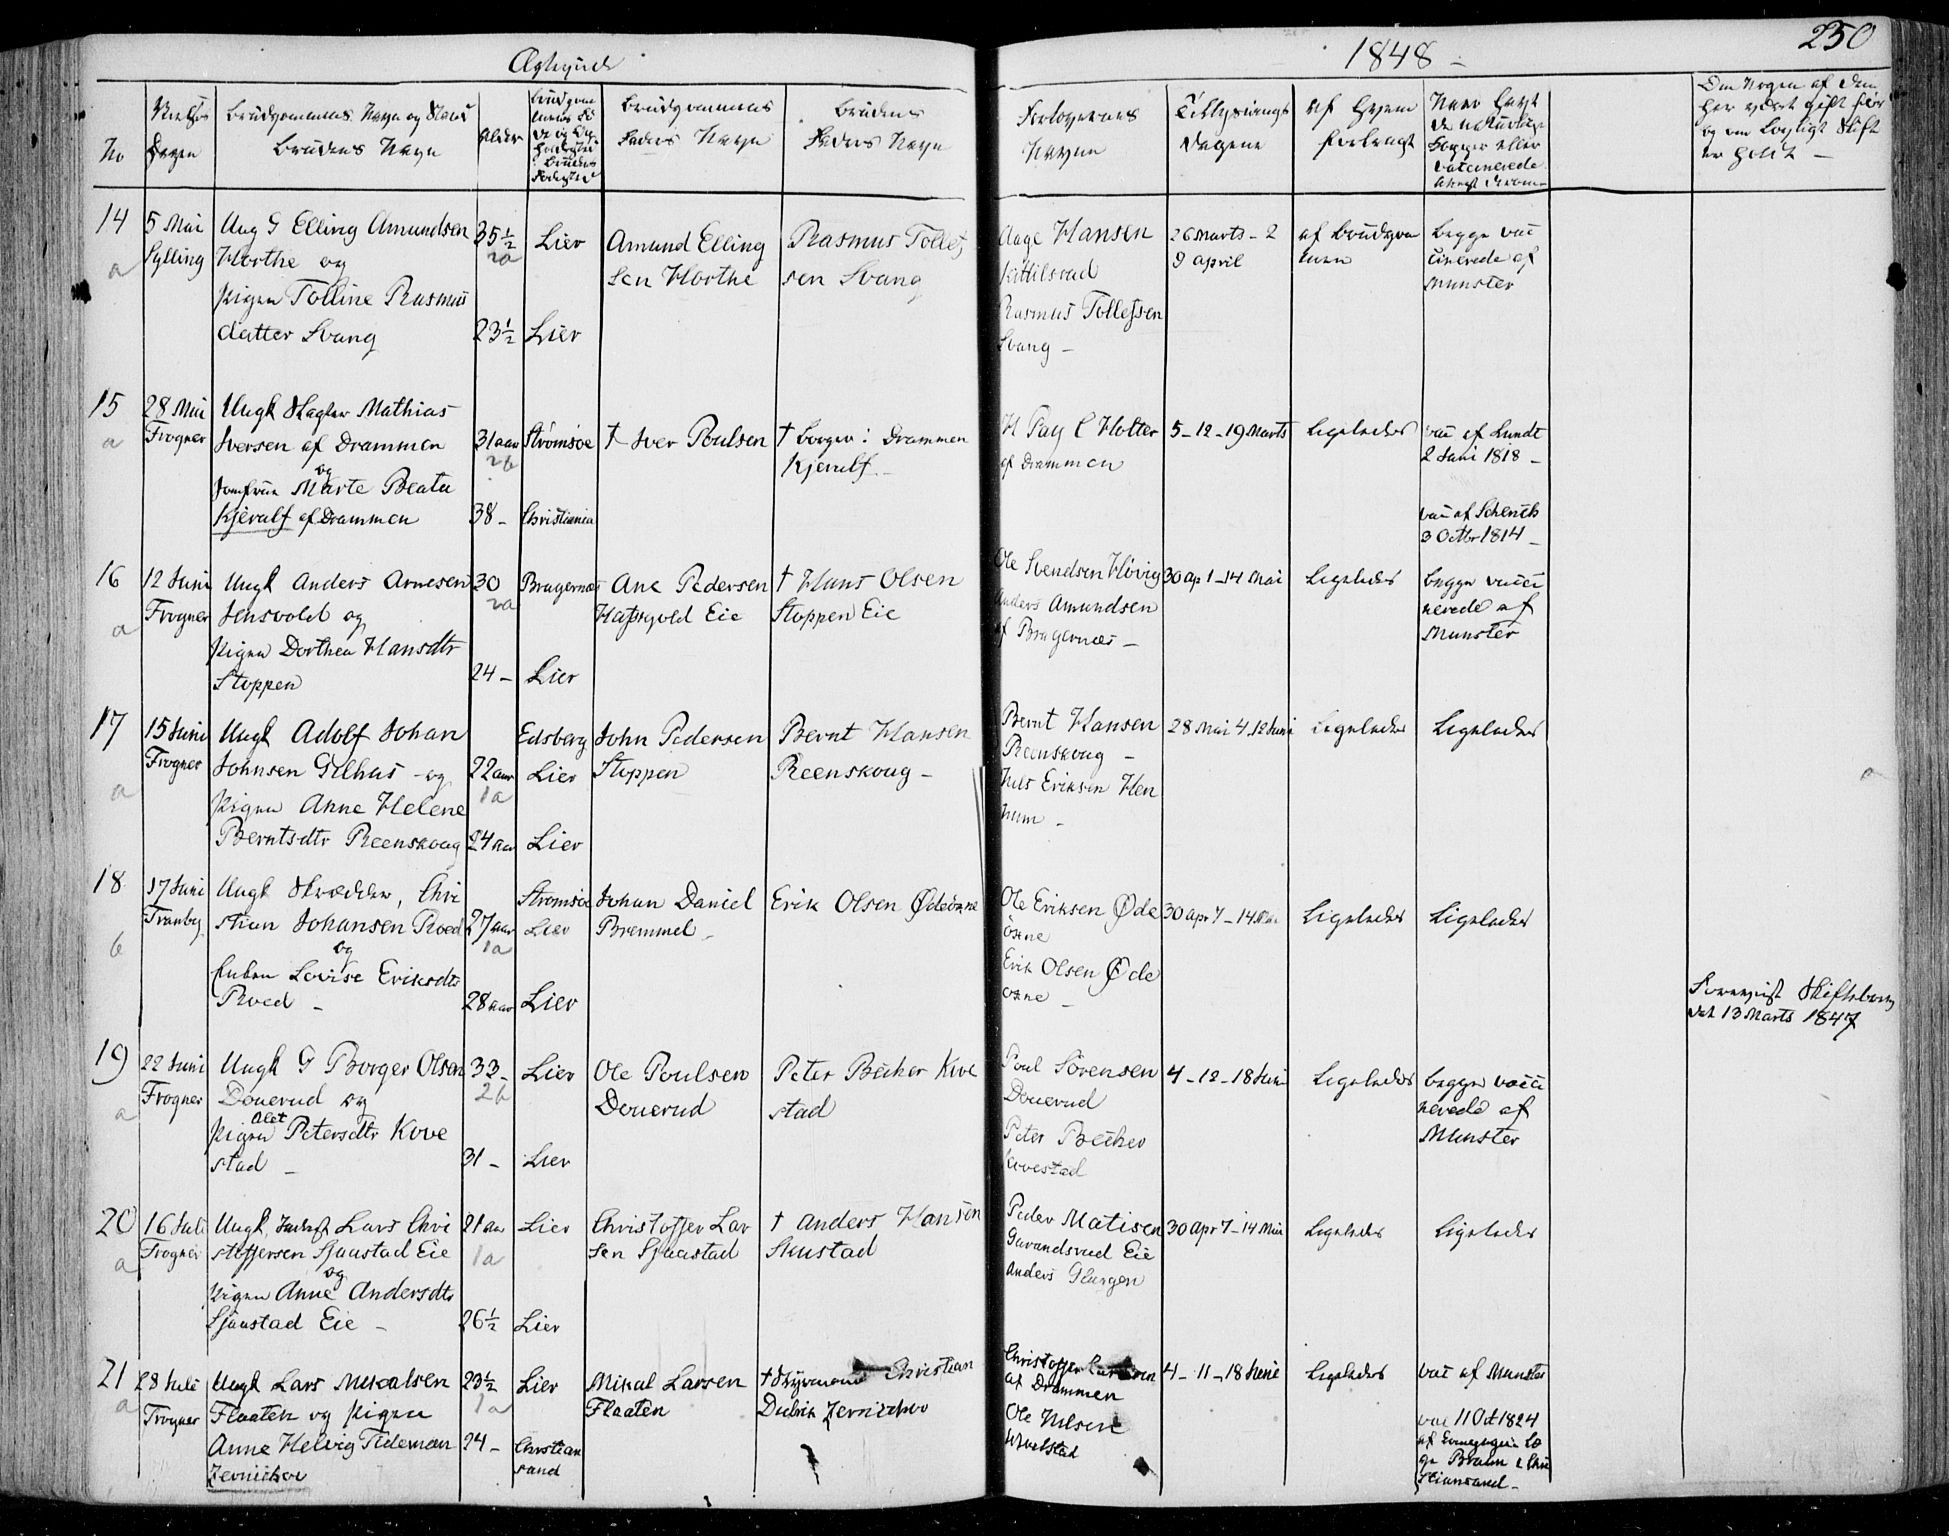 1848
250
No
Brudgommens Navn og Stand
Bruden's Navn
Alder
Brudgommens
Faders Navn
Brudens
Faders Navn
Forlovernes
Navne
Tillysnings
Dagene
14
5 Mai
Sylling
Ung G Elling Amundsen
Horthe og
Pigen Tolline Rasmus
datter Svang
35 1/2
2a
23 1/2
Lier
Lier
Amund Elling
sen Horthe
Rasmus Tollefs
sen Svang
Aage Hansen
Kittilsrud
Rasmus Tollefsen
Svang -
26 Marts - 2
9 april
af Brudgom
men
begge vac
cinerede af
Munster
a
15
28 Mai
Frogner
Ungk Slagter Mathias
Iversen af Drammen
og
Jomfrue Marte Beata
Kjerulf af Drammen
31 aar
2b
38 -
Strømsøe
Christiania
† Iver Poulsen
† borger i Drammen
Kjerulf -
af Drammen
5 - 12 - 19 Marts
Ligeledes
vac af Lundt
2 Juni 1818 -
vac af Schenck
3 Octbr 1814 -
a
16
12 Juni
Frogner
Ungk Anders Arnesen
og
Pigen Dorthea Hansdtr
Stoppen
30
2a
24 -
Bragernæs
Lier
Ane Pedersen
† Hans Olsen
Stoppen Eie
Ole Svendsen Høvig
Anders Amundsen
af Bragernæs -
30 ap 1 - 14 Mai
Ligeledes
begge vacci
nerede af
Munster
a
17
15 Juni
Frogner
Ungk Adolf Johan
Johnsen Gilhus - og
Pigen Anne Helene
Berntsdtr Reenskoug
22 aar
1a
24 aar
Edsberg
Lier
Lier
John Pedersen
Stoppen
Bernt Hansen
Reenskoug -
Bernt Hansen
Reenskoug -
Nils Eriksen Hen
num -
28 Mai 4 12 Juni
Ligeledes
Ligeledes
a
a
18
17 Juni
Tranby
Ungk Skrædder, Chri
stian Johansen Roed
og
Enken Lovise Eriksdtr
Roed -
27 aar
1a
28 aar
Strømsøe
Lier
Lier
Johan Daniel
Bremmel -
Erik Olsen Ødeøxne
Ole Eriksen Øde
øxne
Erik Olsen Øde
øxne -
30 apr 7 - 14 Mai
Ligeledes
Ligeledes
Forevist Skiftebrev
dat 13 Marts 1847
b
19
22 Juni
Frogner
Ungk G Borger Olsen
Douerud og
Olet
Pigen Petersdtr Kove
stad -
33 -
2b
31 -
Lier
Lier
Ole Poulsen
Douerud
Peter Becher Kove
stad
Poul Sørensen
Douerud
Peter Becher
Kovestad
4 - 12 - 18 Juni
Ligeledes
begge vacci
nerede af
Munster
a
20
16 Juli
Frogner
Ungk Inderst Lars Chri
stoffersen Sjaastad Eie
og
Pigen Anne Andersdtr
Sjaastad Eie -
21 aar
1a
26 1/2
Lier
Lier
Christoffer Lar
sen Sjaastad
† Anders Hansen
Skustad
Peder Matisen
Eie
Anders Glurgen
30 apr 7 - 14 Mai
Ligeledes
Ligeledes
a
21
28 Juli
Frogner
Ungk Lars Mikalsen
Flaaten og Pigen
Anne Helvig Tideman
Zernichov
23 1/2
1a
24 -
Lier
Christian
sand
Mikal Larsen
Flaaten
† Styrmand Christian
Zernichov
Christoffer Larsen
af Drammen
Ole Nilsen
4 - 11 - 18 Juni
Ligeledes
vac af Munster
vac 11 Oct 1824
Braun i Chri
stiansand -
a